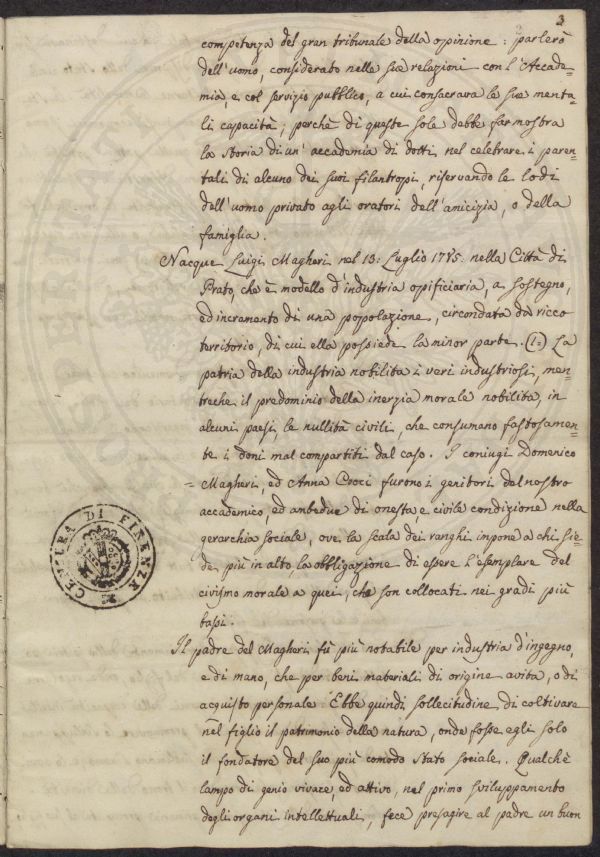 3
competenza del gran tribunale della opinione: parlerò
dell'uomo, considerato nelle sue relazioni con l'Accade-
mia, e col servizio pubblico, a cui consacrava le sue menta-
li capacità; perchè di queste sole debbe far mostra
la Storia di un' accademia di dotti, nel celebrare i paren-
tali di alcuno dei suoi filantropi, riservando le lodi
dell'uomo privato agli oratori dell'amicizia, o della
famiglia.
Nacque Luigi Magheri nel 13: Luglio 1785: nella Città di
Prato, che è modello d'industria opificiaria, a sostegno,
ed incremento di una popolazione, circondata da ricco
territorio, di cui ella possiede la minor parte. (1=) La
patria della industria nobilita i veri industriosi, men-
treche il predominio della inerzia morale nobilita, in
alcuni paesi, le nullità civili, che consumano fastosamen-
te i doni mal compartiti dal caso. I coniugi Domenico
= Magheri, ed Anna Croci furono i genitori del nostro
accademico, ed ambedue di onesta e civile condizione nella
gerarchia sociale, ove la scala dei ranghi impone a chi sie-
de più in alto, la obbligazione di essere l'esemplare del
civismo morale a quei, che son collocati nei gradi più
bassi.
Il padre del Magheri fù più notabile per industria d'ingegno,
e di mano, che per beni materiali di origine avita, o di
acquisto personale. Ebbe quindi sollecitudine di coltivare
nel figlio il patrimonio della natura, onde fosse egli solo
il fondatore del suo più comodo stato sociale. Qualchè
lampo di genio vivace, ed attivo, nel primo sviluppamento
degli organi intellettuali, fece presagire al padre un buon
CENSURA DI FIRENZE